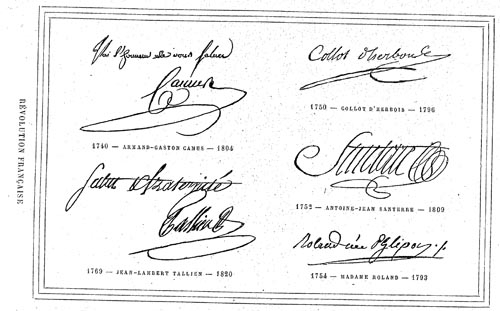 RÉVOLUTION FRANÇAISE
J'ai l'honneur de vous saluer
Camus
1740 — ARMAND-GASTON CAMUS — 1804
Collot d'herbois
1750 — COLLOT D'HERBOIS — 1796
Salut & fraternité
Tallien
1769 — JEAN-LAMBERT TALLIEN — 1820
Santerre
1752 — ANTOINE-JEAN SANTERRE — 1809
Roland née Phlipon
1754 — MADAME ROLAND — 1793